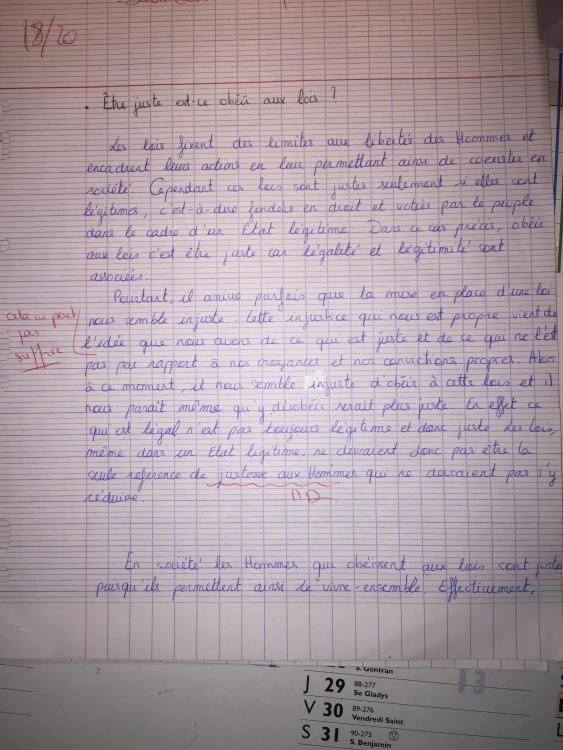 18/20
• Être juste est-ce obéir aux lois ?
Les lois fixent des limites aux libertés des Hommes et
encadrent leurs actions en leur permettant ainsi de coexister en
société. Cependant ces lois sont justes seulement si elles sont
légitimes, c'est-à-dire fondées en droit et votées par le peuple
dans le cadre d'un Etat légitime. Dans ce cas précis, obéir
aux lois c'est être juste car légalité et légitimité sont
associées.
Pourtant, il arrive parfois que la mise en place d'une loi
nous semble injuste. Cette injustice qui nous est propre vient de
l'idée que nous avons de ce qui est juste et de ce qui ne l'est
pas par rapport à nos croyances et nos convictions propres. Alors
à ce moment, il nous semble injuste d'obéir à cette lois et il
nous paraît même qu'y désobéir serait plus juste. En effet ce
qui est légal n'est pas toujours légitime et donc juste. Les lois,
même dans un Etat légitime, ne devraient donc pas être la
seule référence de justesse aux Hommes qui ne devraient pas s'y
réduire.
cela ne peut
pas
suffire
ND
En société les Hommes qui obéissent aux lois sont juste
puisqu'ils permettent ainsi le "vivre-ensemble". Effectivement,
S. Gontran
J 29 88-277 Se Gladys
V 30 89-276 Vendredi Saint
S 31 90-275 S. Benjamin
13